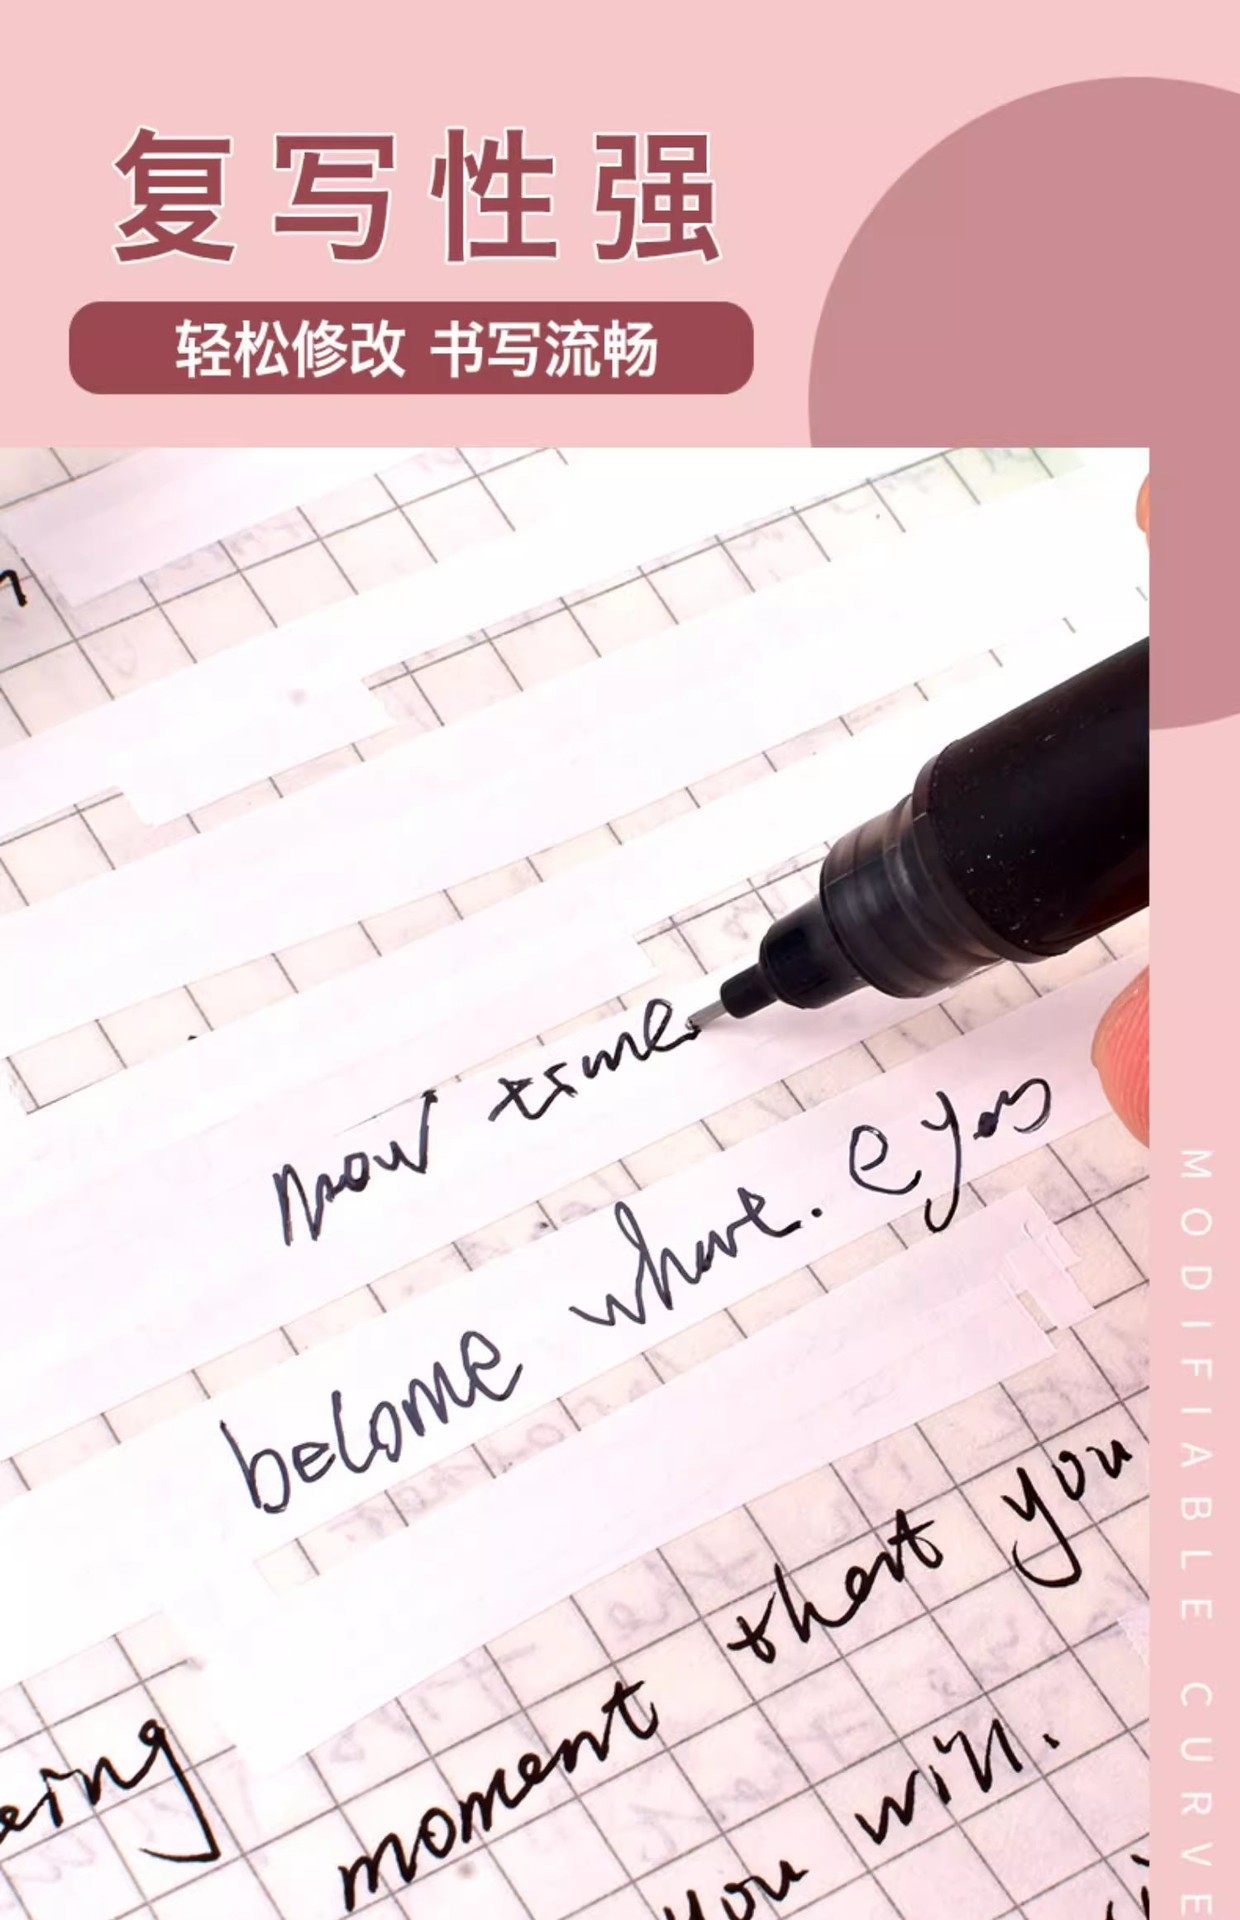 复写性强
轻松修改 书写流畅
now time
become where. eyes
that you
eing moment
you win.
you
MODIFIABLE CURVE